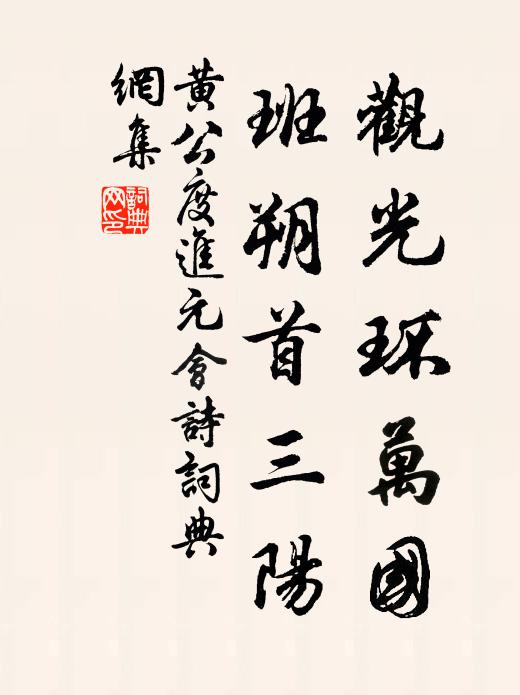 觀光环萬國
班朔首三陽
黄公度進元會詩詞典
網集
詞典
网印